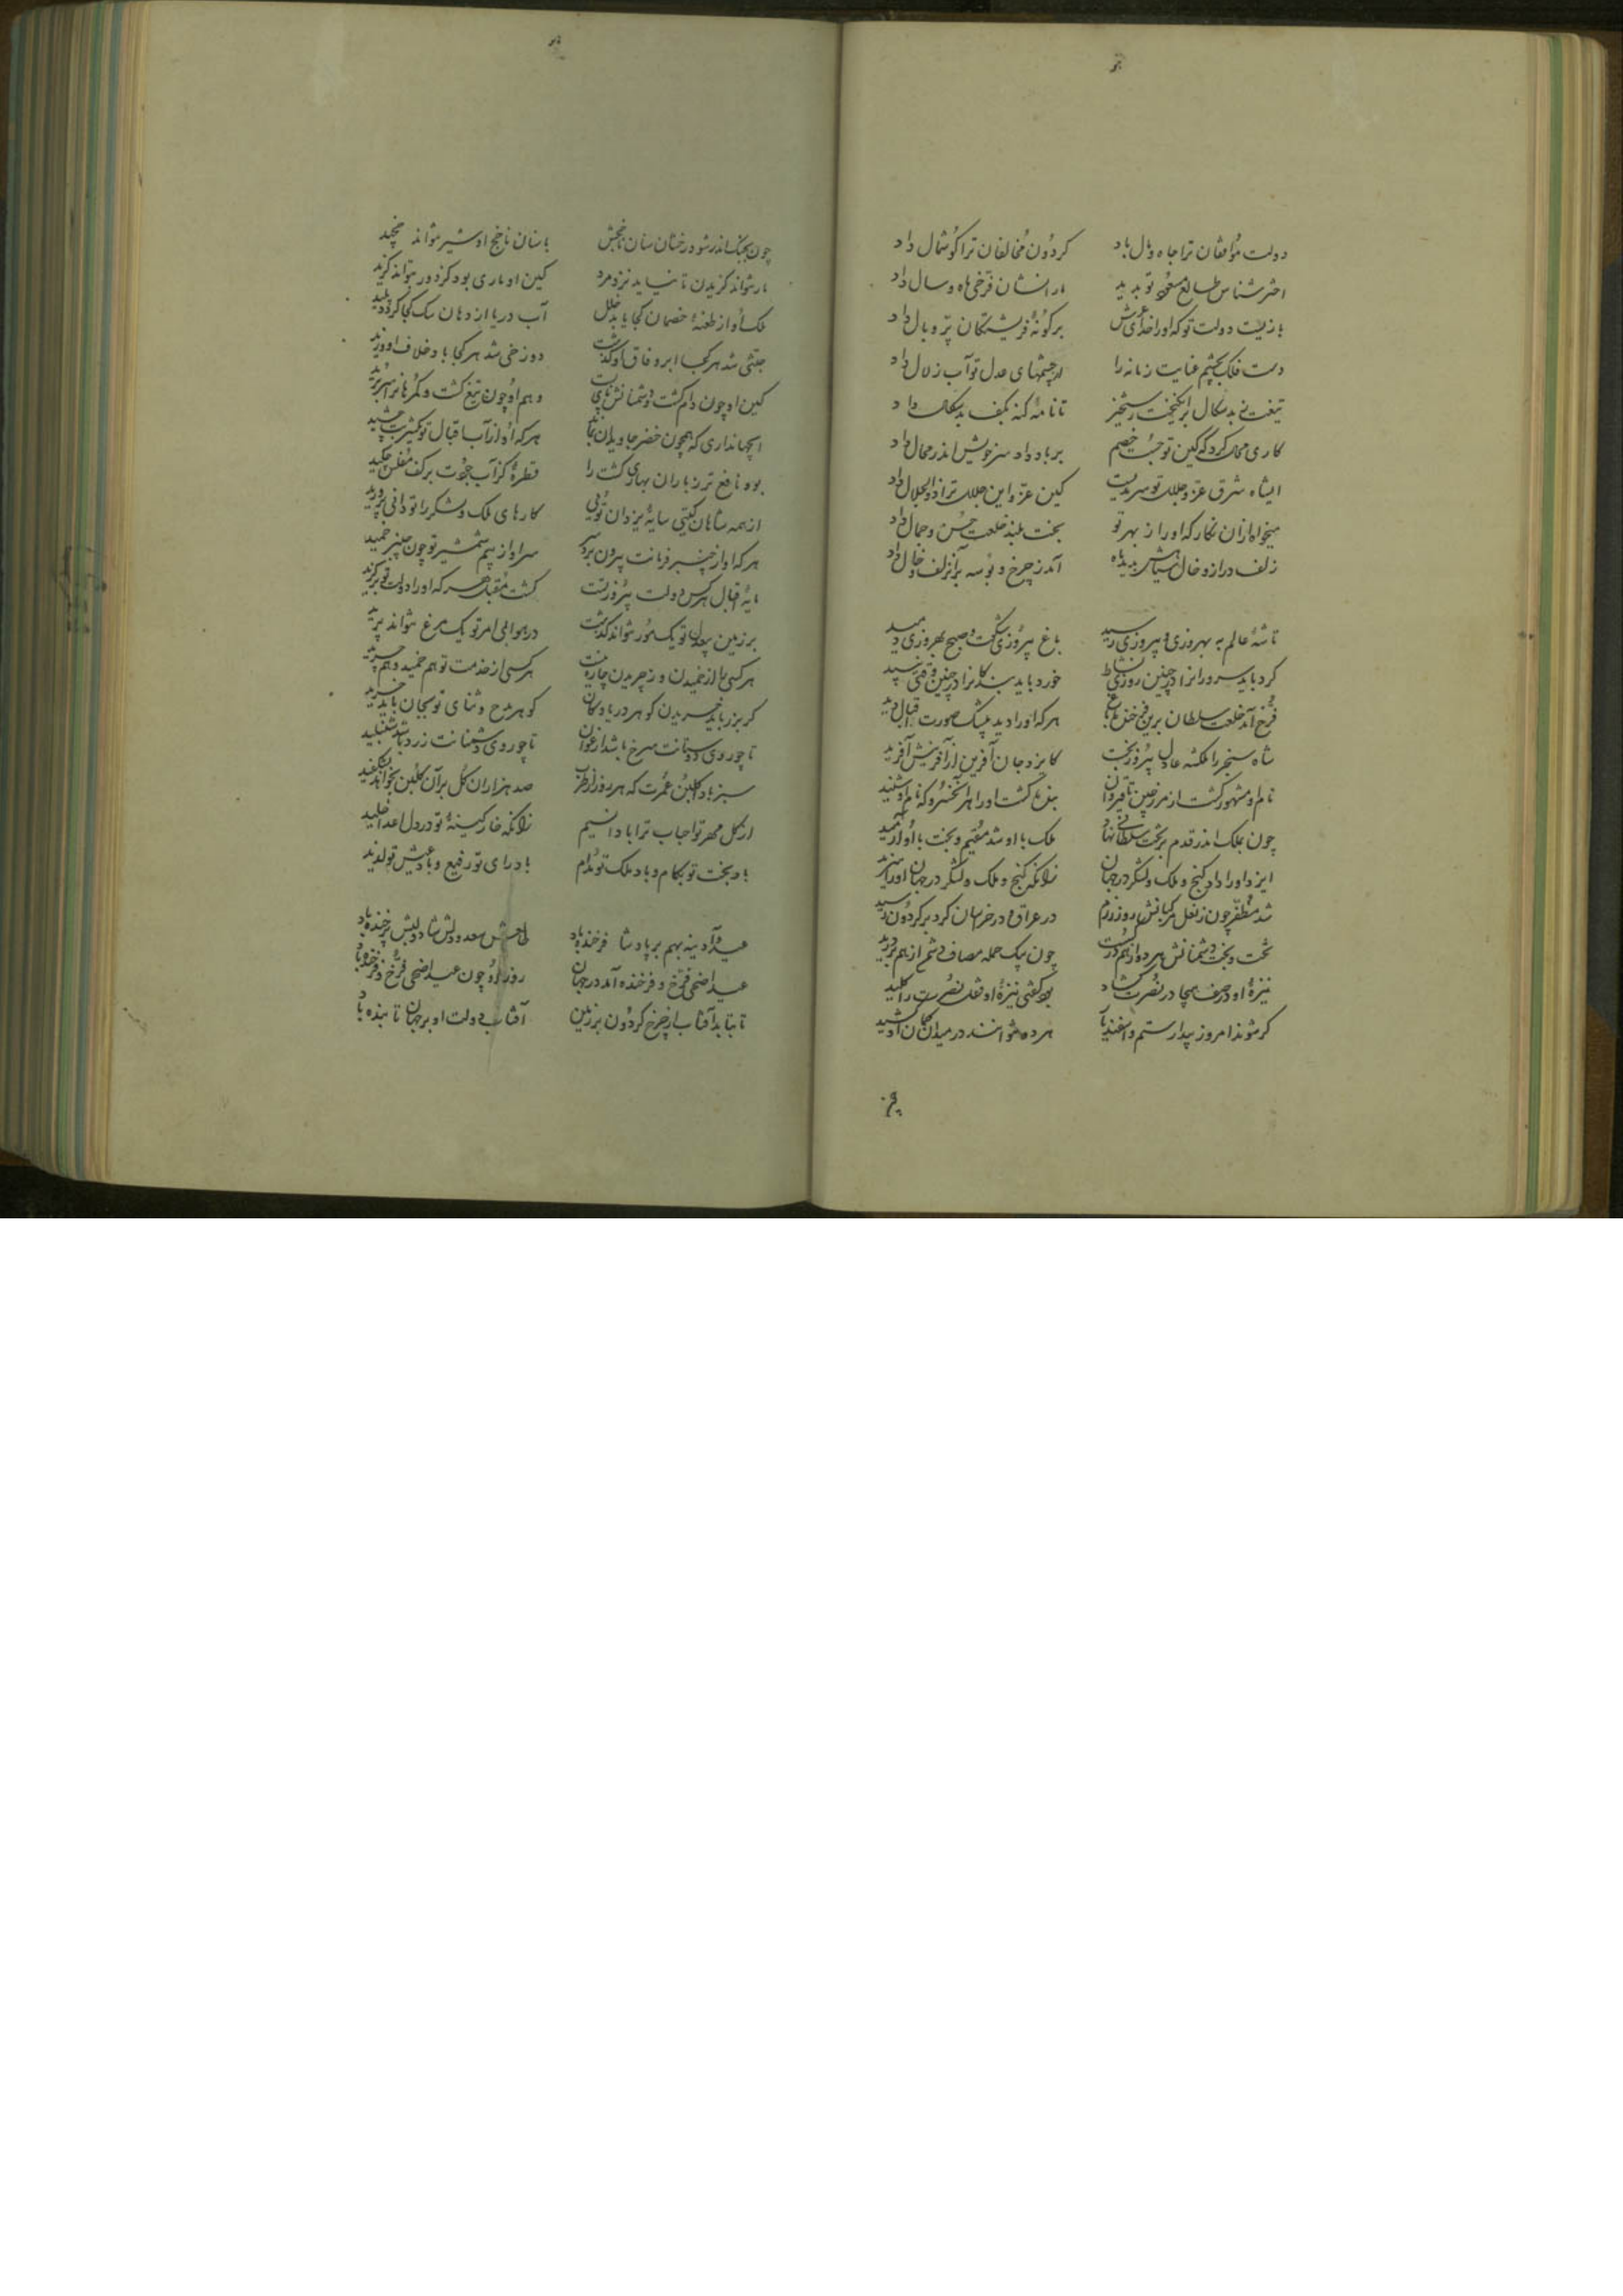 دولت مؤافقان ترا جاه و مال داد گردون مخالفان ترا گوشمال داد
اخترشناس طالع مسعود تو بدید مارا نشان فرّخی ماه و سال داد
بازیست دولت تو که او را خدای عرش برگونهٔ فریشتگان پرّ و بال داد
دست فلک بچشم عنایت زمانه را از چشمهای عدل تو آب زلال داد
تیغت ز بدسگال برانگیخت رستخیز تا نامهٔ گنه بکف بدسگال داد
کاری محال کرد که کین تو جست خصم بر باد داد سر خویش اندر محال داد
ای شاه شرق عزّ و جلالت تو سرمدیست کین عزّ و این جلالت ترا ذوالجلال داد
میخواه ازان نگار که او را ز بهر تو بخت بلند خلعت حسن و جمال داد
زلف دراز و خال سیاهش بدید ماه آمد ز چرخ و بوسه بر آن زلف و خال داد
تا شه عالم به بهروزی و پیروزی رسید باغ پیروزی شکفت و صبح بهروزی دمید
کرد باید سرورانرا در چنین روزی نشاط خورد باید بندگانرا در چنین وقتی نبید
فرّخ آمد خلعت سلطان برین فرّخ خلق هرکه او را دید بیشک صورت اقبال دید
شاه سنجر را ملکشه عادل پیروزبخت کایزد جان آفرین از آفرینش آفرید
نام او مشهور گشت از مرز چین تا قیروان بنده گشت او را هر آن خسرو که نام او شنید
چون بملک اندر قدم بر تخت سلطانی نهاد ملک با او شد مقیم و بخت با او آرمید
ایزد او را داد گنج و ملک و لشکر در جهان زانکه گنج و ملک و لشکر در جهان او را سزید
شد مظفّر چون ز نعل مرکبانش روز رزم در عراق و در خراسان گرد بر گردون رسید
تخت و بخت دشمنانش هر دو از هم در گسست چون بیک حمله مصاف دشمن از هم بر درید
نیزهٔ او در صف هیجا در نصرت گشاد بود گفتی نیزهٔ او قفل نصرت را کلید
گر شوند امروز بیدار رستم و اسفندیار هر دو نتوانند در میدان کمان او کشید
چون بجنگ اندر شود رخشان سنان ناخجش با سنان ناخج او شیر نتواند چخید
مار نتواند گزیدن تا نیاید نزد مرد کین او ماری بود کز دور بتواند گزید
ملک او از طعنهٔ خصمان کجا یابد خلل آب دریا از دهان سگ کجا گردد پلید
جنّتی شد هر کجا ابر وفاق او گذشت دوزخی شد هر کجا باد خلاف او وزید
کین او چون دام گشت و دشمنانش پای بست وهم او چون تیغ گشت و گمرهان را سر برید
ای جهانداری که همچون خضر جاویدان بماند هرکه او از آب اقبال تو یک شربت چشید
بود نافع‌تر ز باران بهاری کشت را قطرهٔ کز آب جودت بر کف مفلس چکید
از همه شاهان گیتی سایهٔ یزدان توئی کارهای ملک و لشکر را تو دانی پرورید
هرکه او از چنبر فرمانت بیرون برد سر سر او از بیم شمشیر تو چون چنبر خمید
مایهٔ اقبال هر کس دولت پیروز تست گشت مقبل هر که او را دولت تو برگزید
بر زمین بی عدل تو یک مور نتواند گذشت در هوا بی امر تو یک مرغ نتواند پرید
هر کسی را از خمیدن وز چریدن چاره نیست هر کسی از خدمت تو هم خمید و هم چرید
گر بزر باید خریدن گوهر دریا و کان گوهر مدح و ثنای تو بجان باید خرید
تا چو روی دوستانت سرخ باشد ارغوان تا چو روی دشمنانت زرد باشد شنبلید
سبز باد گلبن عمرت که هر روز از طرب صد هزاران گل بر آن گلبن بخواهد بشکفید
از گل مهر تو احباب ترا بادا نسیم زانکه خار کینهٔ تو در دل اعدا خلید
باد بخت تو بکام و باد ملک تو مدام باد رای تو رفیع و باد عیش تو لذید
عید و آدینه بهم بر پادشا فرخنده باد طالعش سعد و دلش شاد و لبش پر خنده باد
عید اضحی فرّخ و فرخنده آمد در جهان روز او چون عید اضحی فرّخ و فرخنده باد
تا بتابد آفتاب از چرخ گردون بر زمین آفتاب دولت او بر جهان تابنده باد